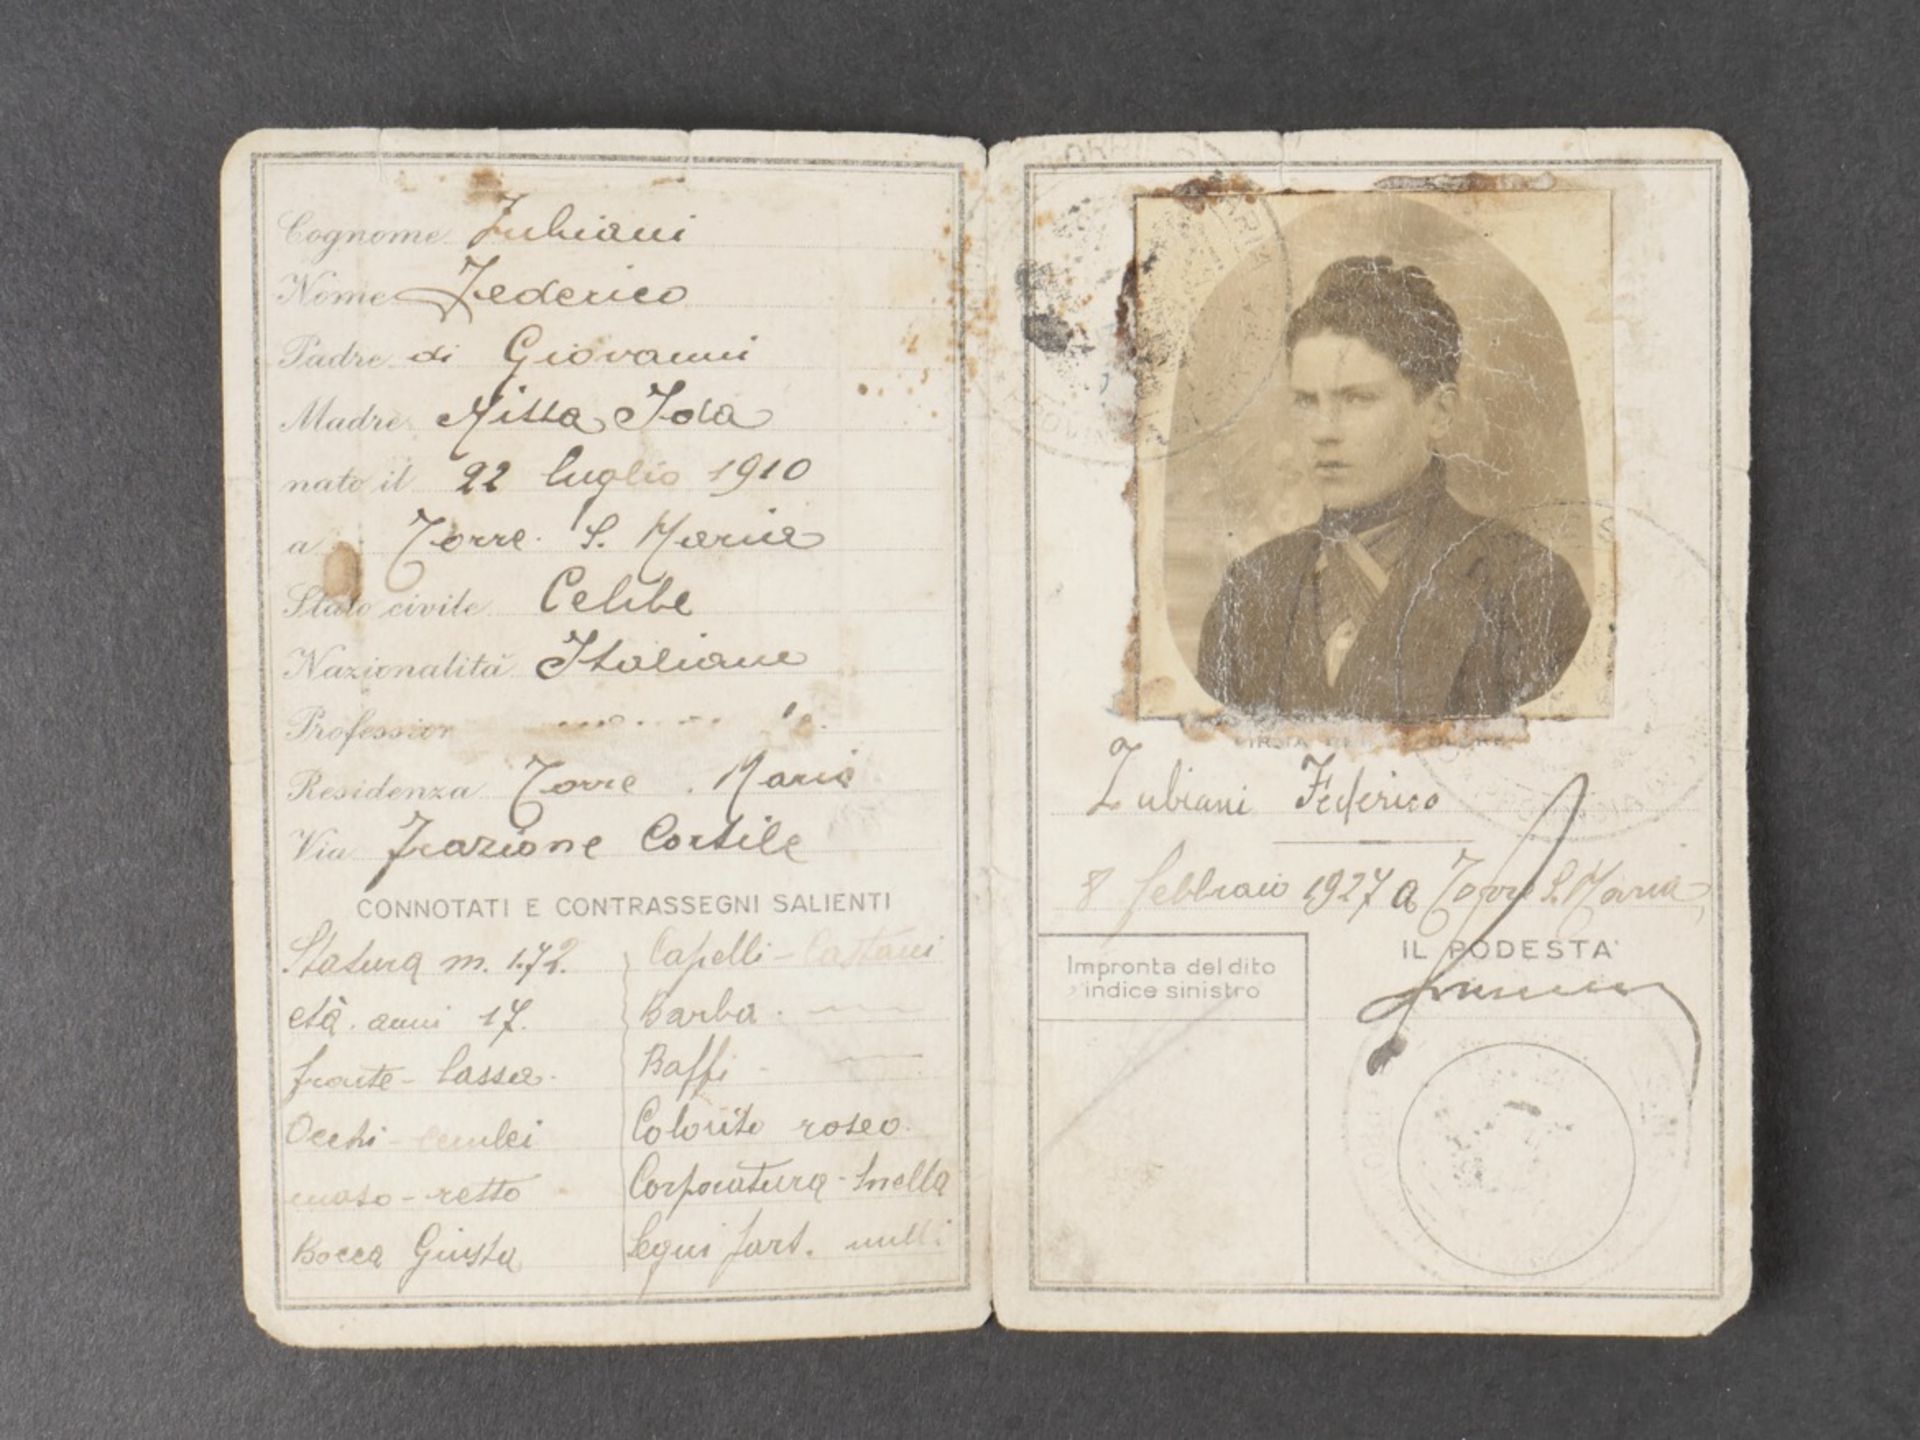 Cognome Zubiani
Nome Federico
Padre di Giovanni
Madre Ida
nato il 22 luglio 1910
a Torre S. Maria
Stato civile Celibe
Nazionalità Italiana
Profession
Residenza Torre . Maria
Via Frazione Cortile
CONNOTATI E CONTRASSEGNI SALIENTI
Statura m. 1.72.
età. anni 17.
fronte - bassa.
Occhi - cerulei
naso - retto
Bocca Giusta
Capelli - Castani
Barba. —
Baffi - —
Colorito roseo.
Corporatura - Snella
Segni part. nulli
Zubiani Federico
8 febbraio 1927 a Torre S. Maria
IL PODESTA'
Impronta del dito
indice sinistro